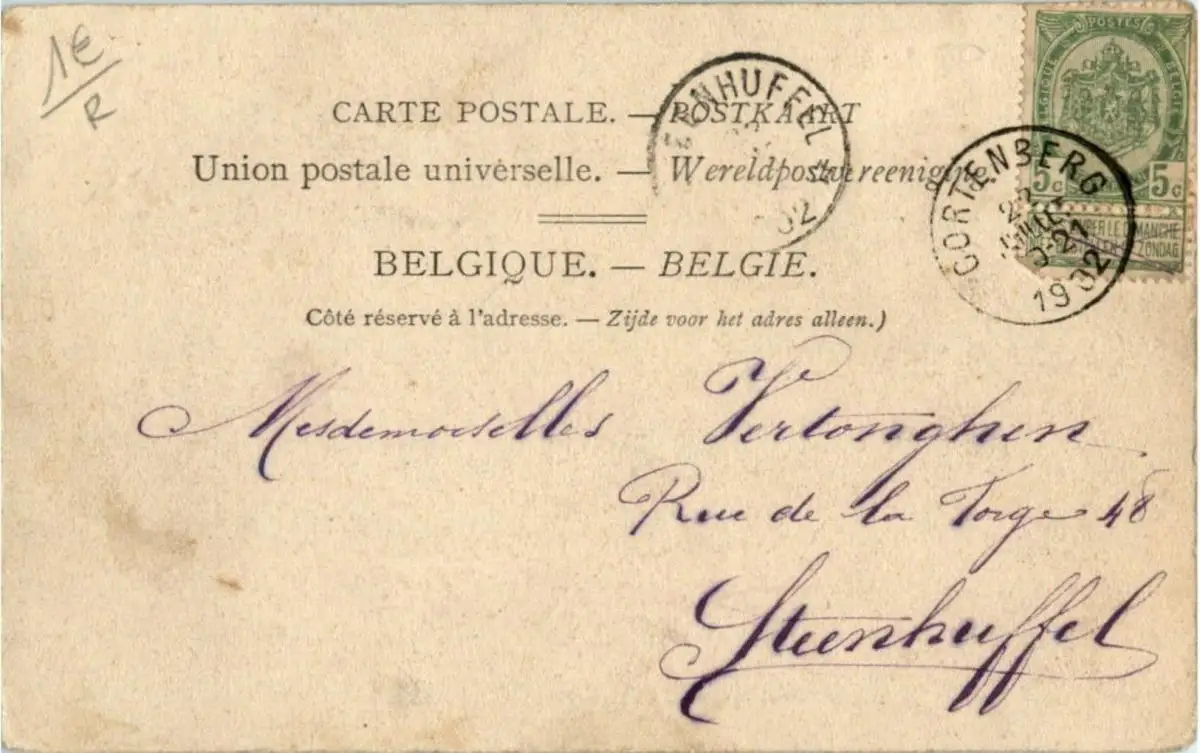 1€
R
CARTE POSTALE. — POSTKAART
Union postale universelle. — Wereldpostvereeniging.
BELGIQUE. — BELGIE.
Côté réservé à l'adresse. — Zijde voor het adres alleen.)
POSTES
BELGIQUE BELGIË
5c 5c
ZONDAG
EENHUFFEL
02
CORTENBERG
1902
Mesdemoiselles Vertonghen
Rue de la Forge 48
Steenhuffel